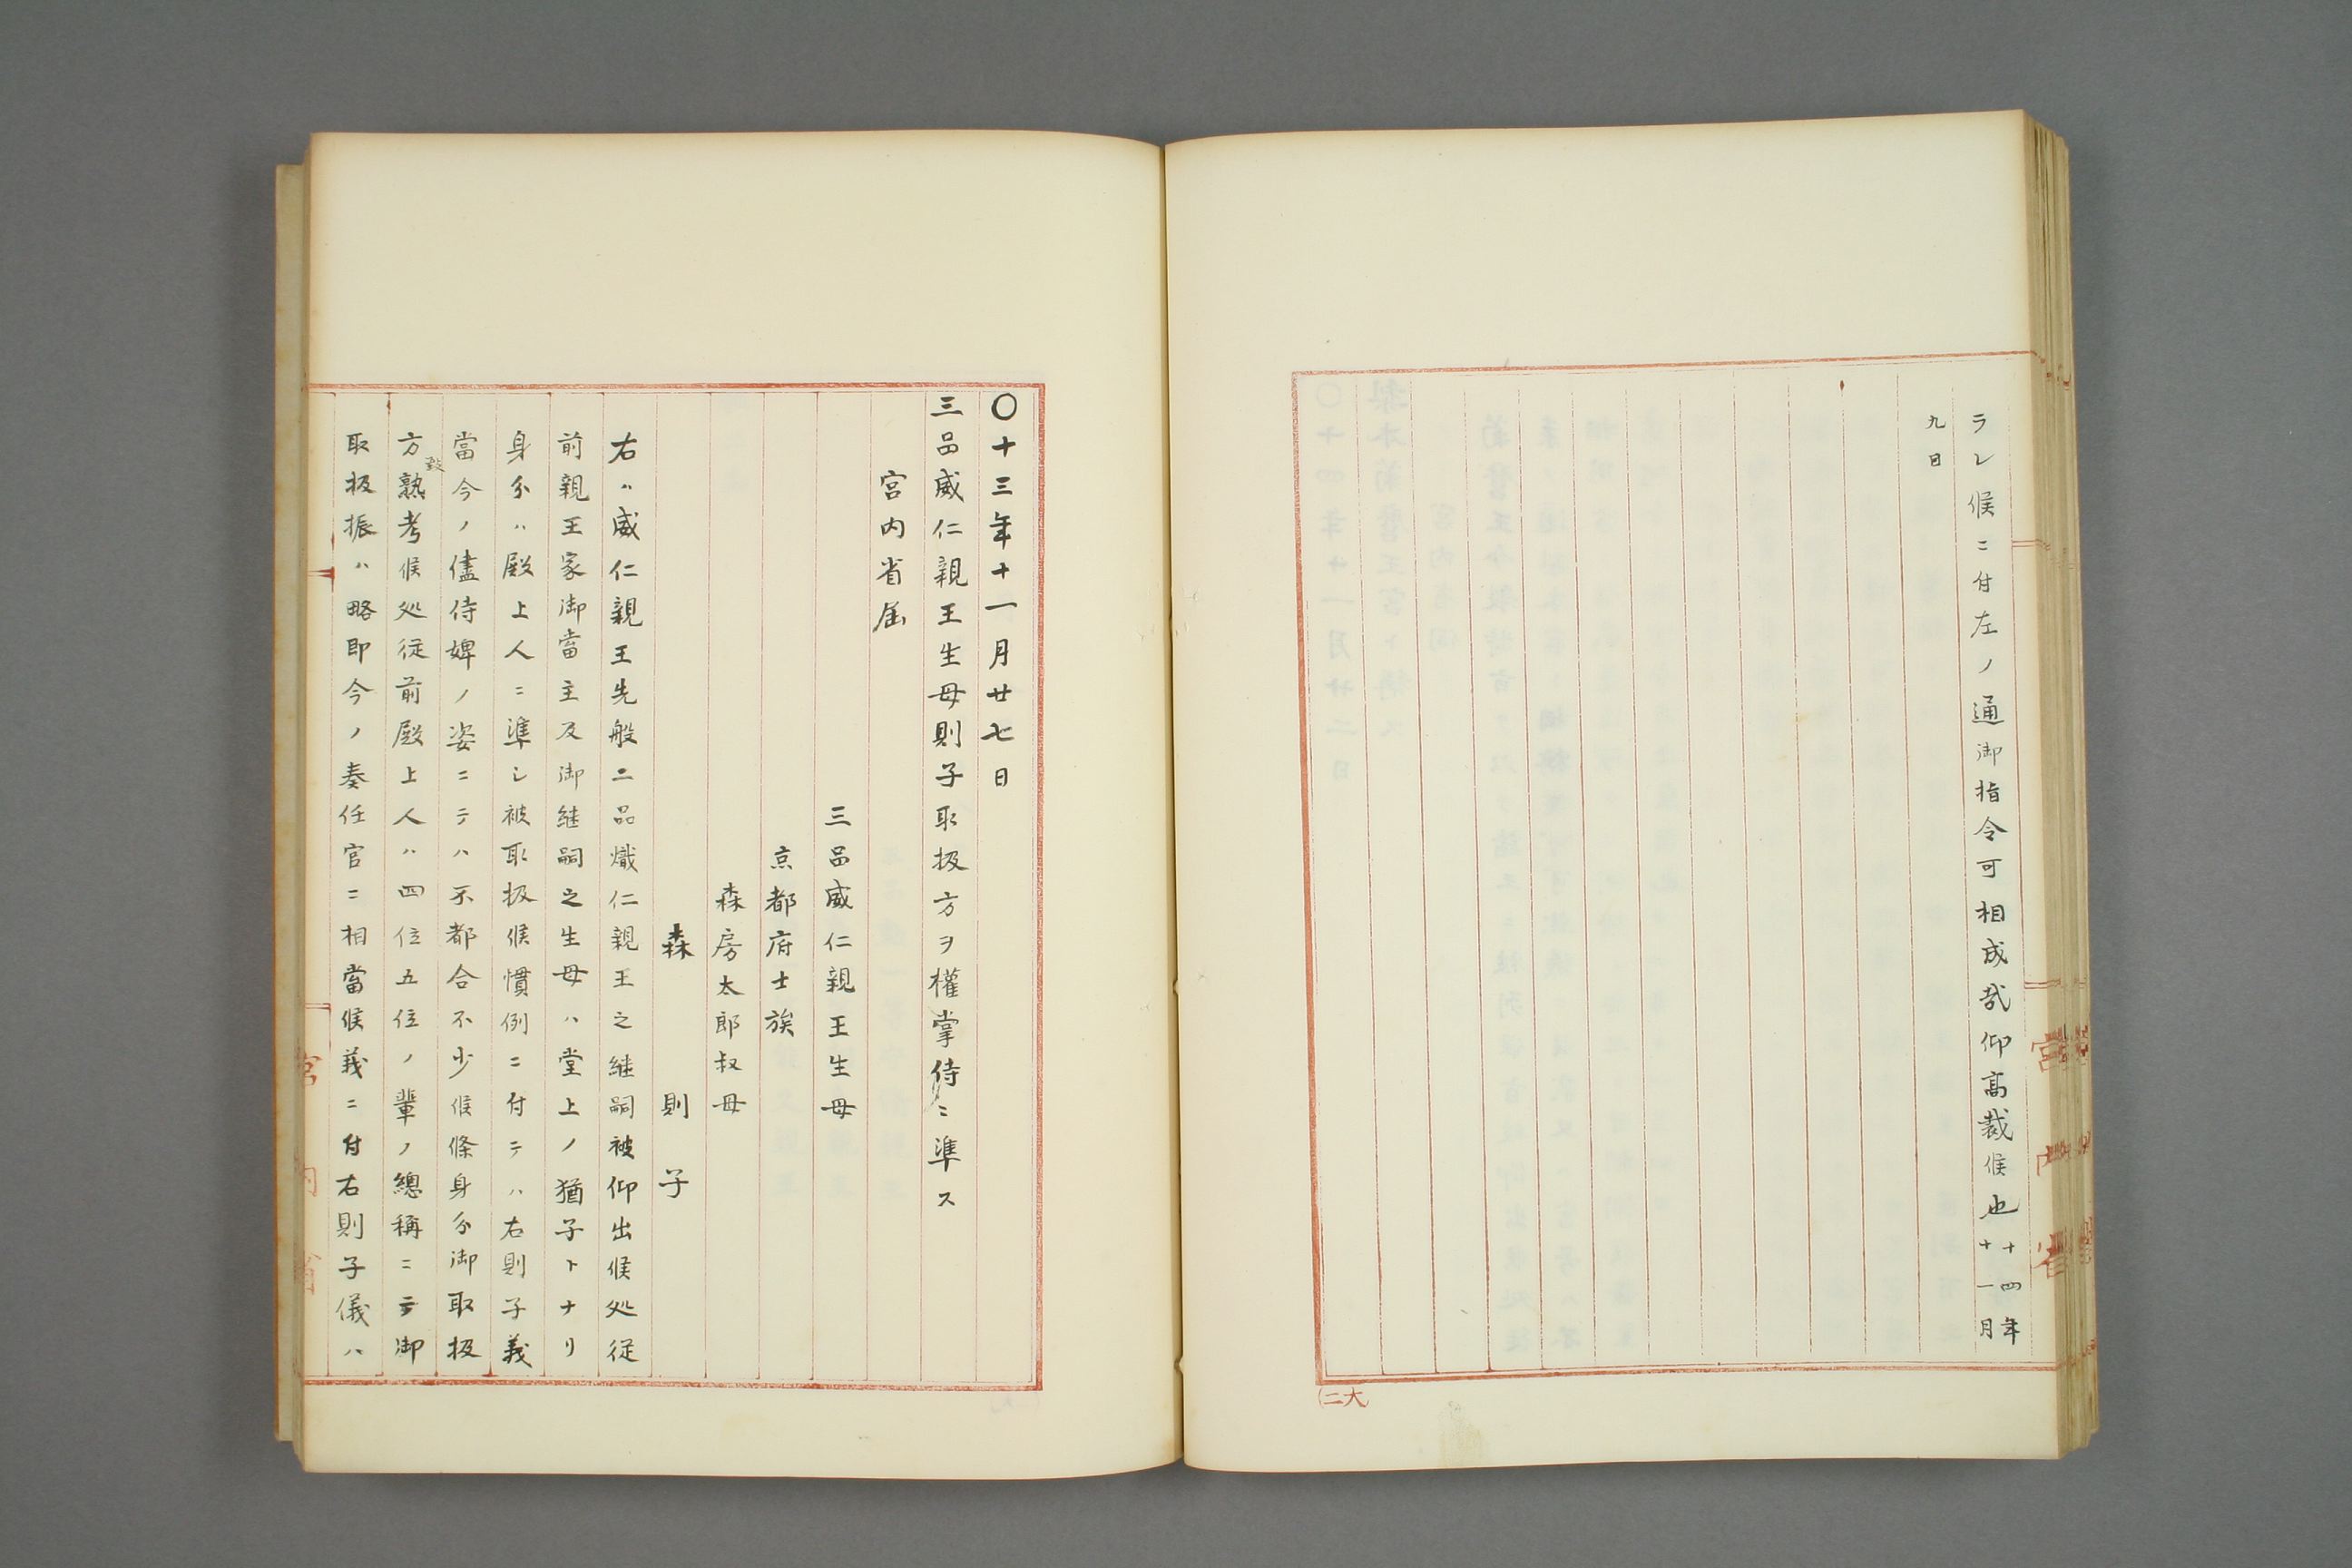 ラレ候ニ付左ノ通御指令可相成哉仰高裁候也十四年十一月
九日
宮内省
(二大)
〇十三年十一月廿七日
三品威仁親王生母則子取扱方ヲ權掌侍ニ準ス
宮内省届
三品威仁親王生母
京都府士族
森房太郎叔母
森則子
右ハ威仁親王先般二品熾仁親王之継嗣被仰出候処従
前親王家御當主及御継嗣之生母ハ堂上ノ猶子トナリ
身分ハ殿上人ニ準シ被取扱候慣例ニ付テハ右則子義
當今ノ儘侍婢ノ姿ニテハ不都合不少候條身分御取扱
方熟考候処従前殿上人ハ四位五位ノ輩ノ總稱ニテ御
取扱振ハ略即今ノ奏任官ニ相當候義ニ付右則子儀ハ
宮内省